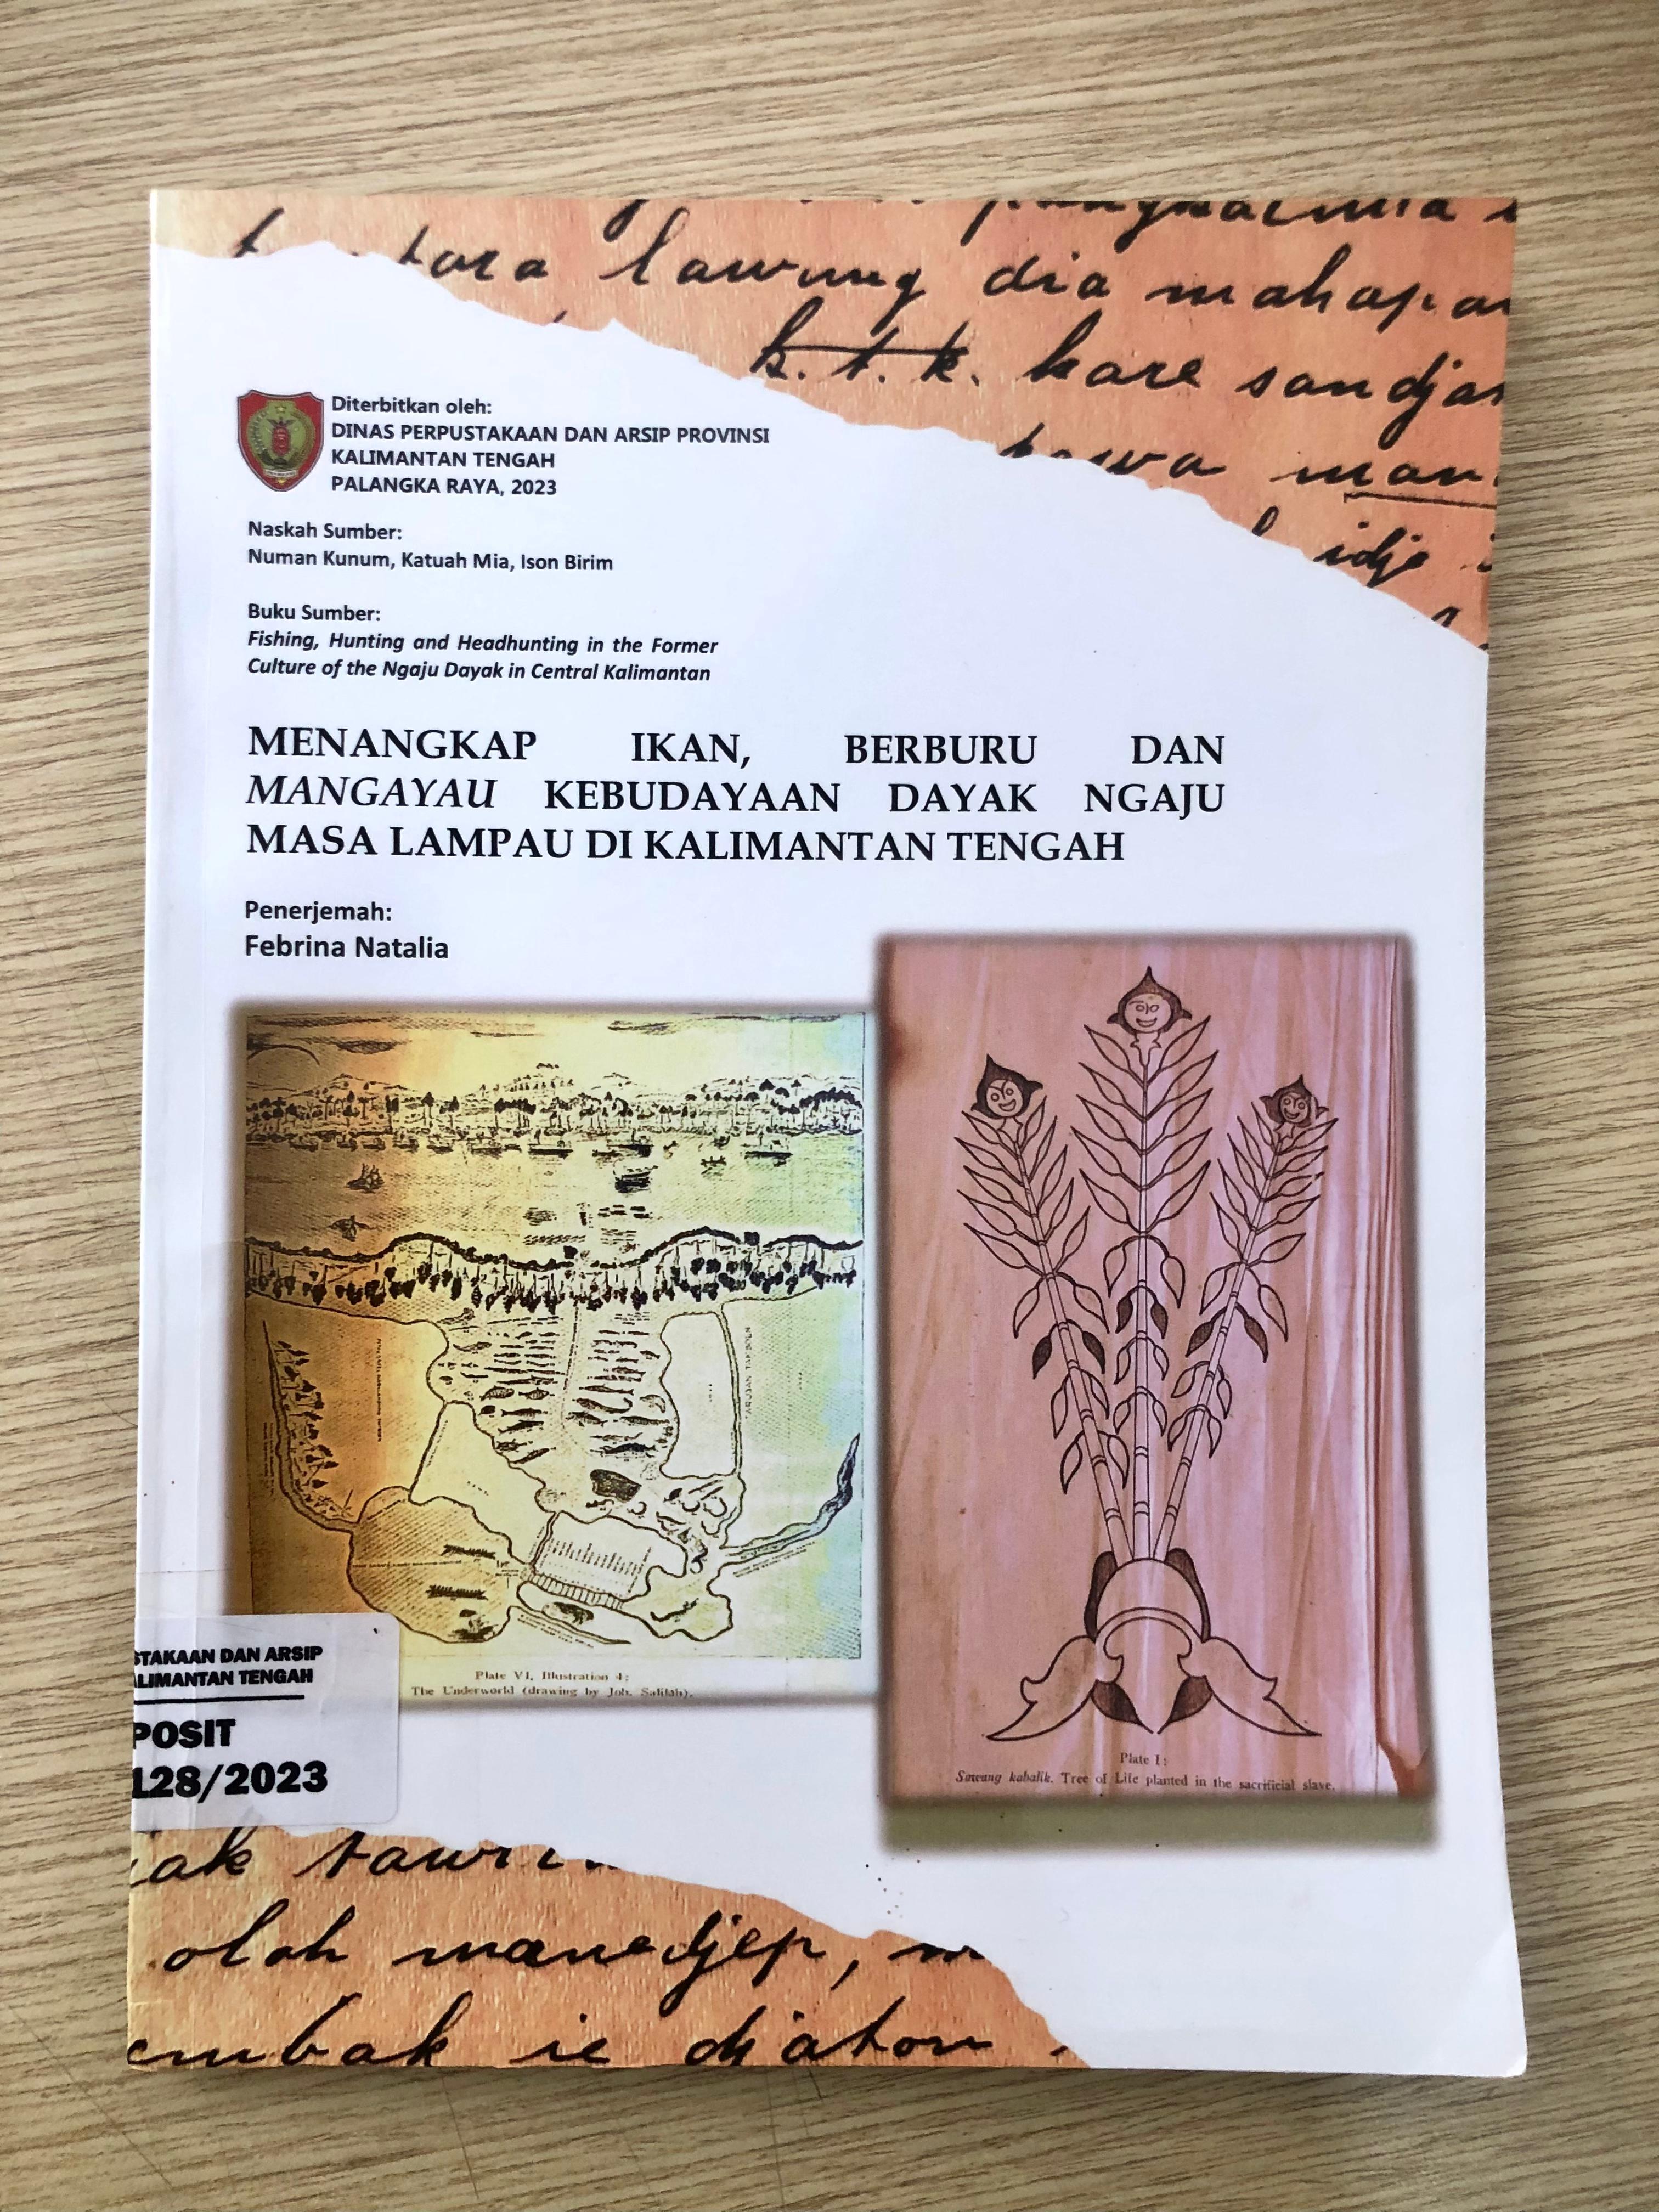 lawung dia mahapa
k.t.k. kare sandja
idje
Diterbitkan oleh:
DINAS PERPUSTAKAAN DAN ARSIP PROVINSI
KALIMANTAN TENGAH
PALANGKA RAYA, 2023
Naskah Sumber:
Numan Kunum, Katuah Mia, Ison Birim
Buku Sumber:
Fishing, Hunting and Headhunting in the Former
Culture of the Ngaju Dayak in Central Kalimantan
MENANGKAP IKAN, BERBURU DAN
MANGAYAU KEBUDAYAAN DAYAK NGAJU
MASA LAMPAU DI KALIMANTAN TENGAH
Penerjemah:
Febrina Natalia
Plate VI, Illustration 4:
The Underworld (drawing by Joh. Salilah).
Plate I:
Sawang kabalik. Tree of Life planted in the sacrificial slave.
STAKAAN DAN ARSIP
ALIMANTAN TENGAH
POSIT
128/2023
oloh manedjep,
embak ie djaton